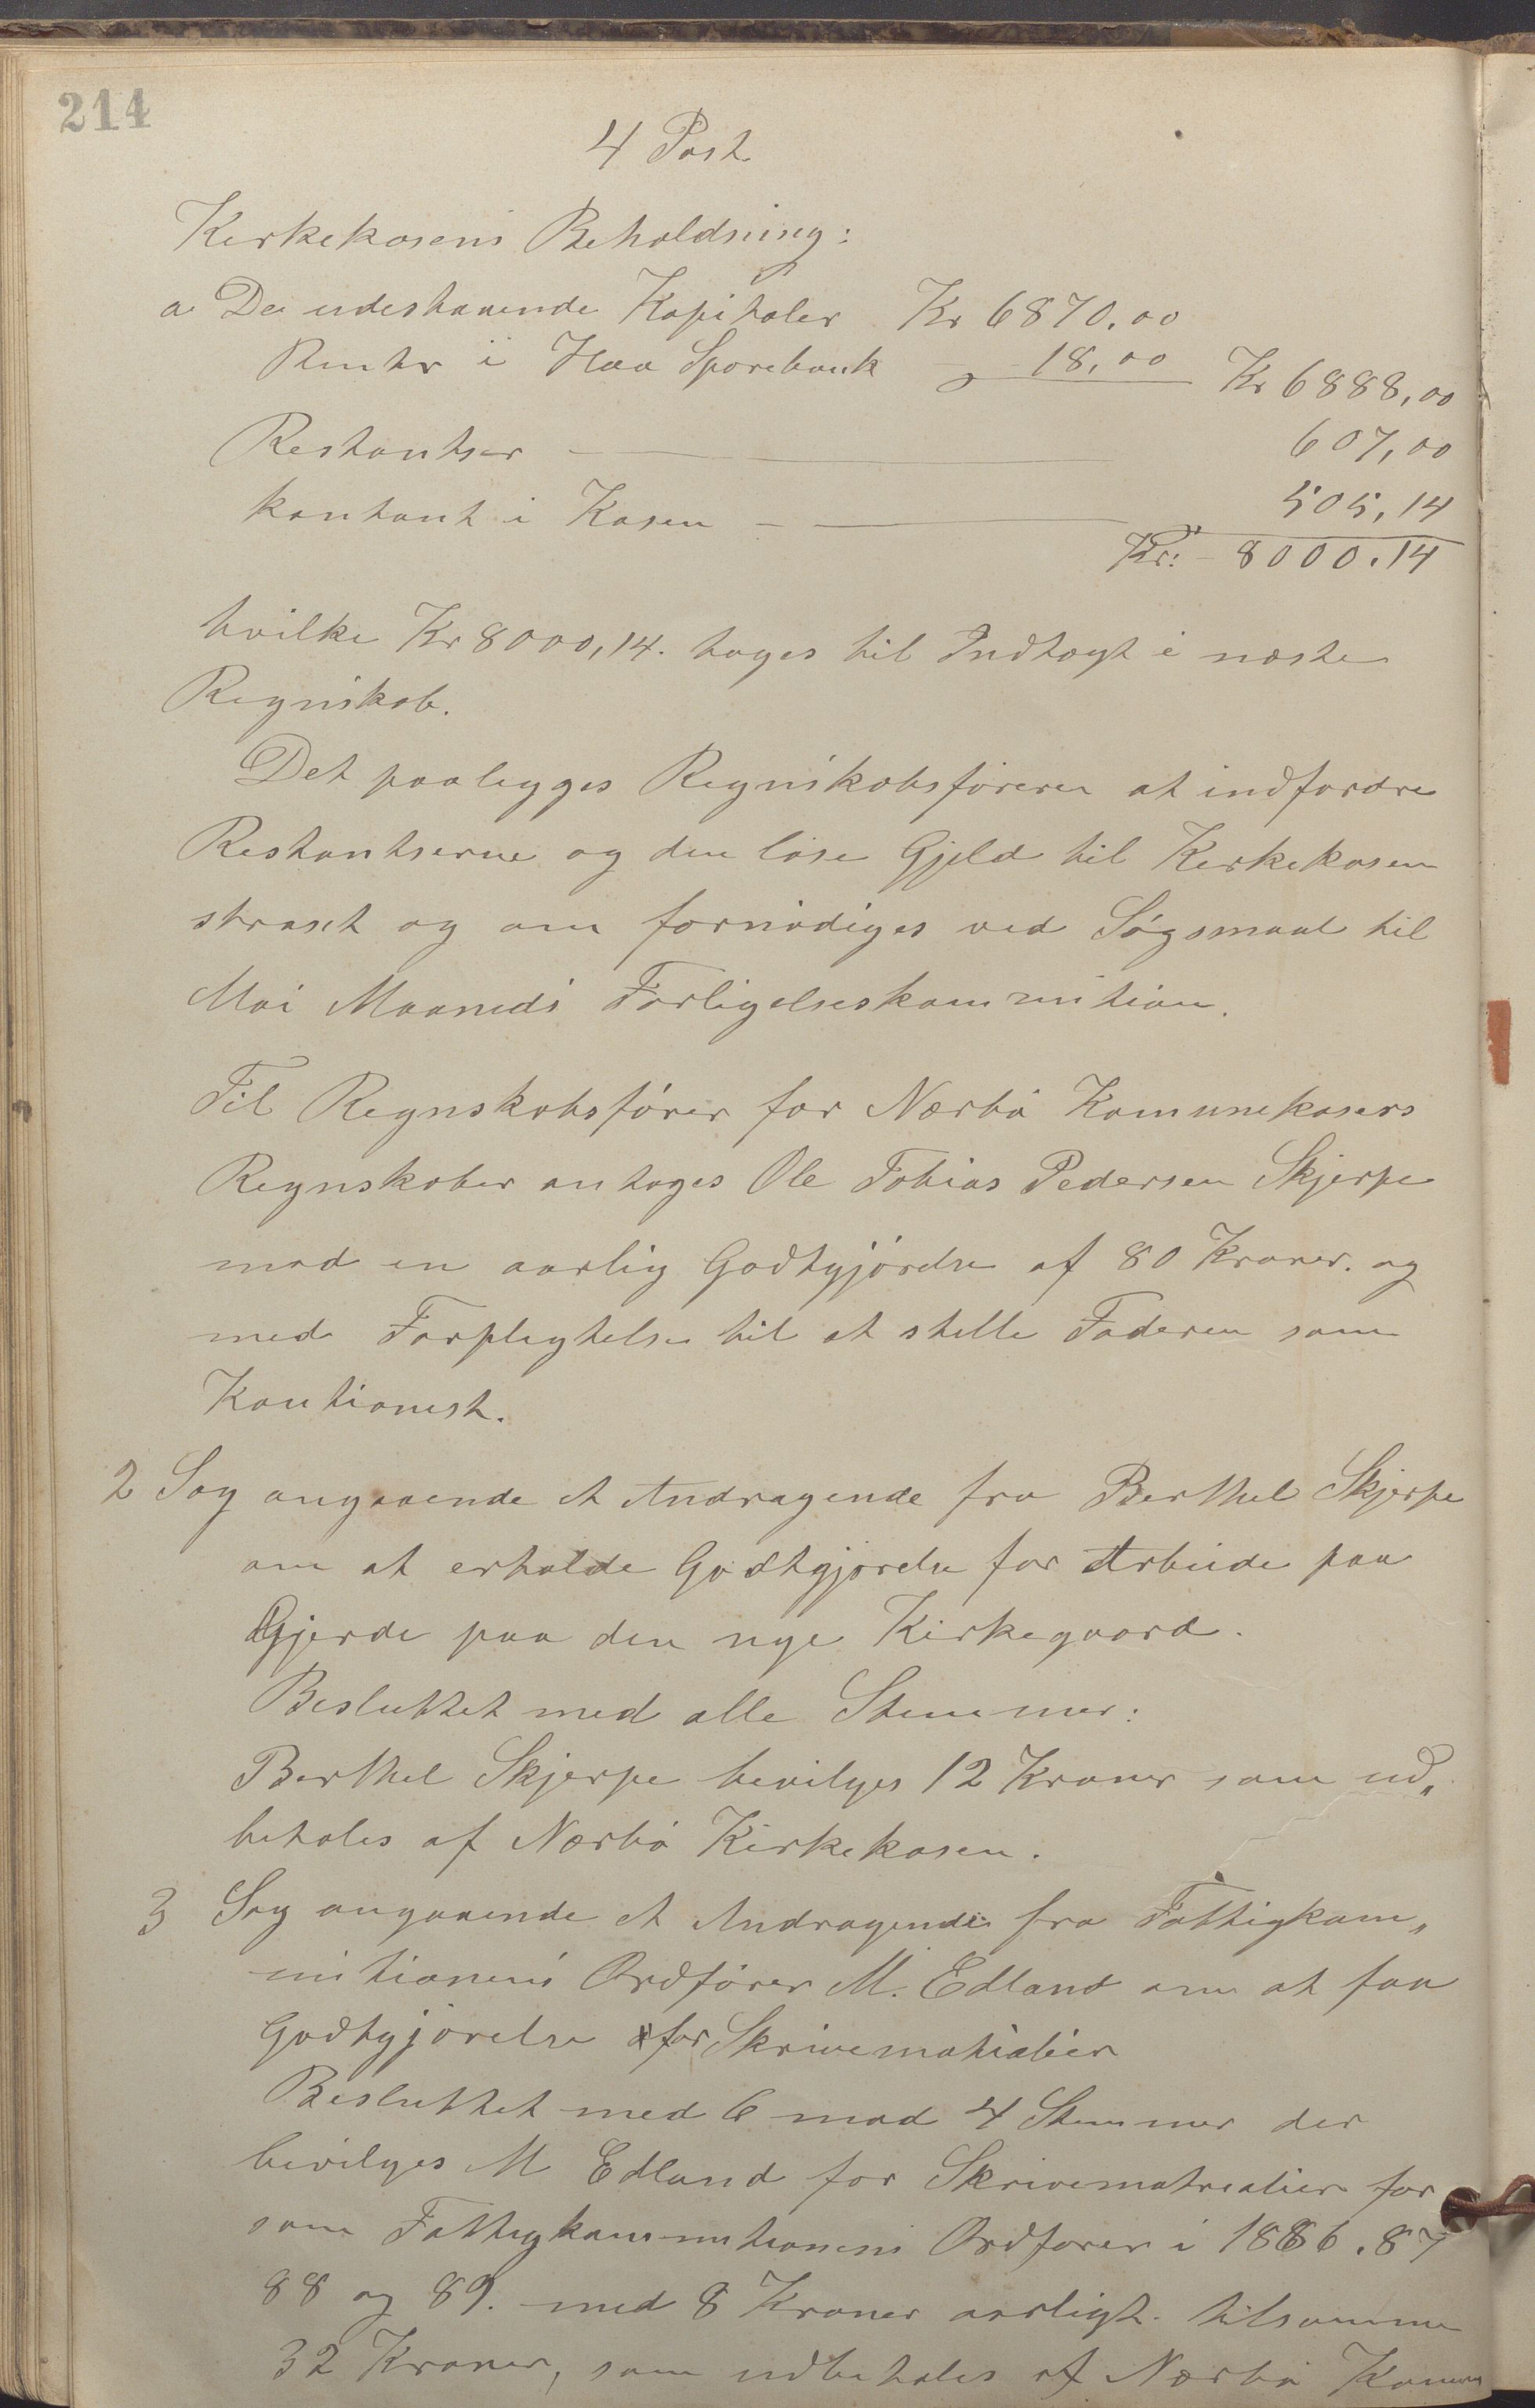 214
4 Post
Kirkekasens Beholdning:
a De udestaaende Kapitaler Kr 6870,00
Renter i Haa Sparebank 18,00 Kr 6888,00
Restantser 607,00
kontant i Kasen 505,14
Kr: 8000.14
hvilke Kr 8000,14. tages til Indtægt i næste
Regnskab.
Det paalegges Regnskabsføreren at indfordre
Restantserne og den løse Gjeld til Kirkekasen
straxt og om fornødiges ved Søgsmaal til
Mai Maaneds Forligelseskommition.
Til Regnskabsfører for Nærbø Komunekasers
Regnskaber antages Ole Tobias Pedersen Skjerpe
mod en aarlig Godtgjørelse af 80 Kroner. og
med Forpligtelse til at stille Faderen som
Kautionist.
2 Sag angaaende et Andragende fra Berthel Skjerpe
om at erholde Godtgjørelse for Arbeide paa
Gjerde paa den nye Kirkegaard.
Besluttet med alle Stemmer:
Berthel Skjerpe bevilges 12 Kroner som ud„
betales af Nærbø Kirkekasen.
3 Sag angaaende et Andragende fra Fattigkom„
mitionens Ordfører M. Edland om at faa
Godtgjørelse for Skrivematialier
Besluttet med 6 mod 4 Stemmer der
bevilges M Edland for Skrivematrealier for
som Fattigkommitionens Ordfører i 1886. 87
88 og 89. med 8 Kroner aarligt. tilsamme
32 Kroner, som udbetales af Nærbø Komune